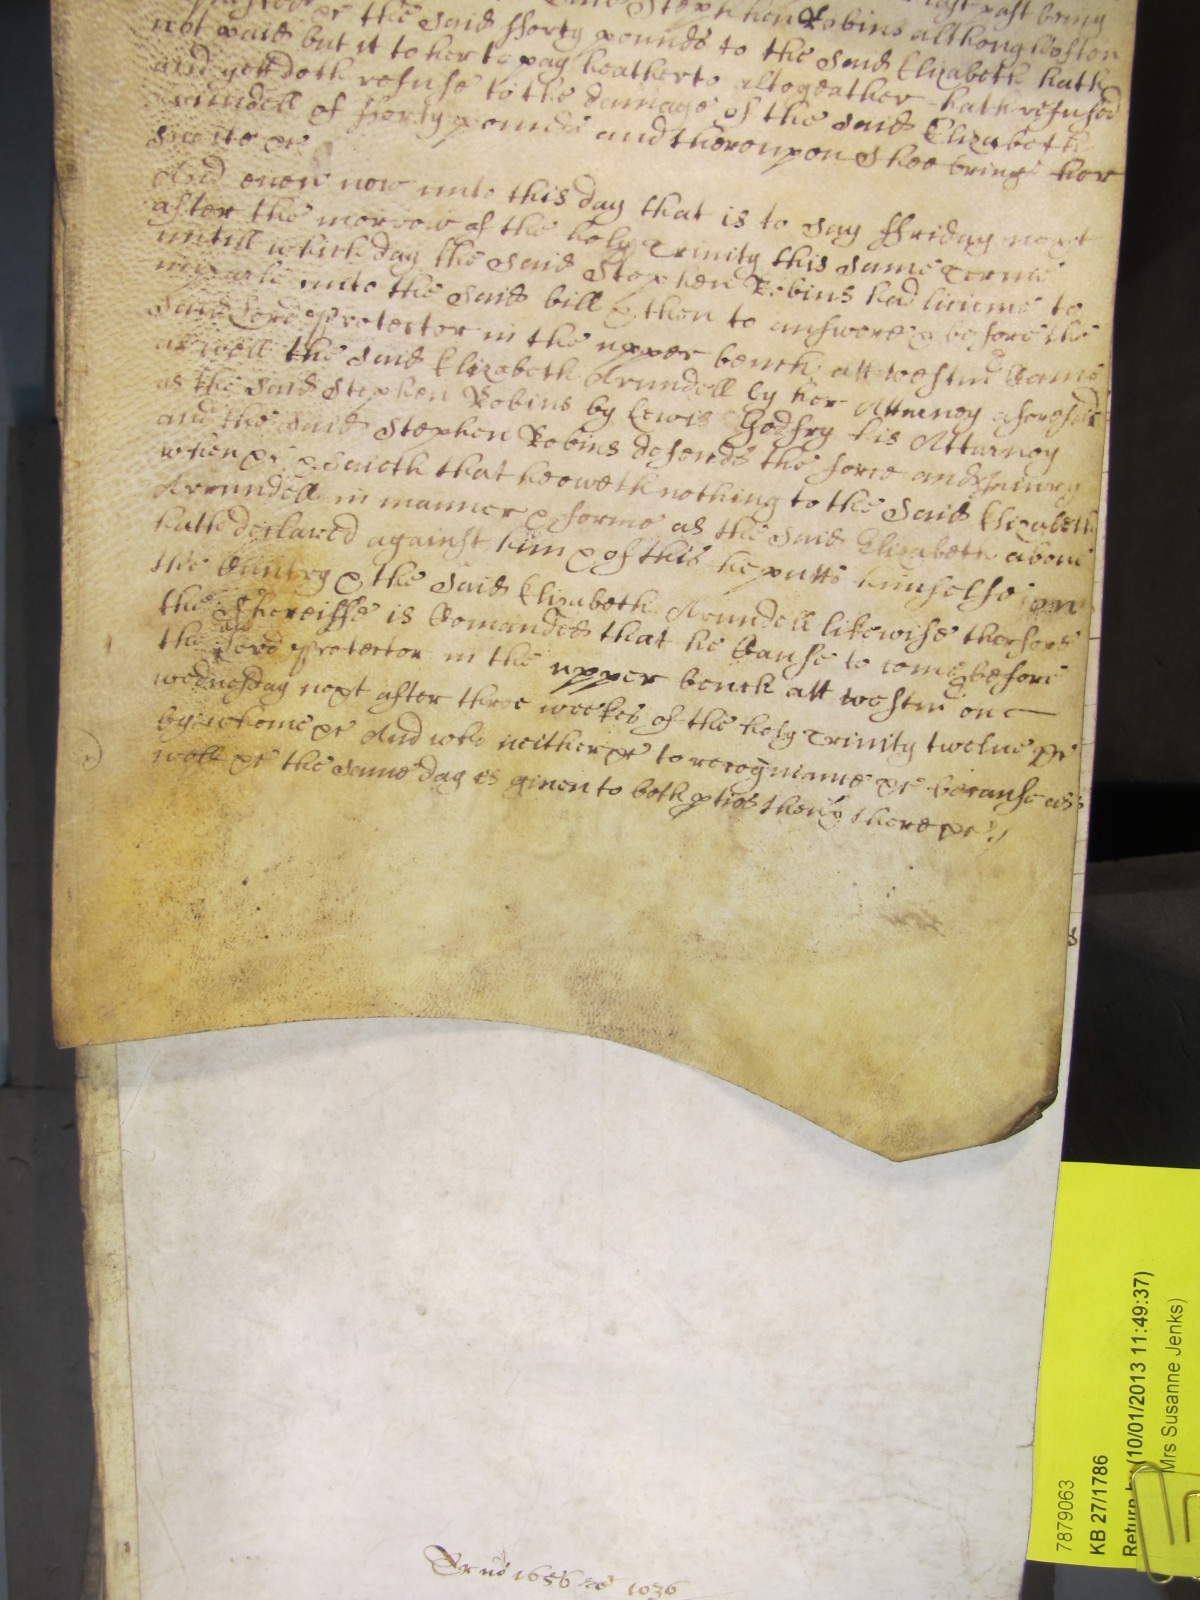 last past being
the said Stephen Robins although often
not paid but it to her to pay heatherto altogeather hath refused
and yett doth refuse to the damage of the said Elizabeth
Arundell of fforty pounds and thereupon shee brings her
suite &c
And even now unto this day that is to say ffriday next
after the morrow of the holy Trinity this same Terme
untill which day the said Stephen Robins had licience to
imparle unto the said bill & then to answere &c before the
said Lord Protector in the upper bench att Westmr Came
as well the said Elizabeth Arundell by her Atturney aforesaid
as the said Stephen Robins by Lewis Godfry his Atturney
and the said Stephen Robins defends the force and Injury
when &c & saieth that he oweth nothing to the said Elizabeth
Arrundell in manner & forme as the said Elizabeth above
hath declared against him & of this he putts himselfe upon
the Cuntry & the said Elizabeth Arundell likewise therfore
the Shereiffe is Comanded that he Cause to come before
the said Lord Protector in the upper bench att westmr on
wednesday next after three weekes of the holy Trinity twelve &c
by whome &c And who neither &c to recogniance &c because as
well &c the same day is given to both pties then & there &c
1656 1036
7879063
KB 27/1786
Return by (10/01/2013 11:49:37)
Mrs Susanne Jenks)